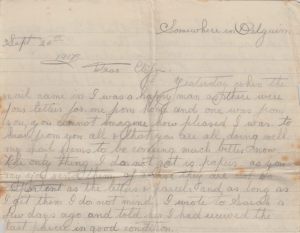 Somewhere in Belguim
Sept 20th
1917
Dear
Yesterday when the
mail came in I was a happy man as there were
four letters for me from and one was from
you, you cannot imagine how pleased I was to
hear from you all & that you are all doing well
my mail seems to be coming much better now
the only thing I do not get is papers, as you
say you send them of course they are not so
as the letters & parcels and as long as
I get them I do not mind, I wrote to Sarah a
few days ago and told her I had received the
last parcel in good condition.